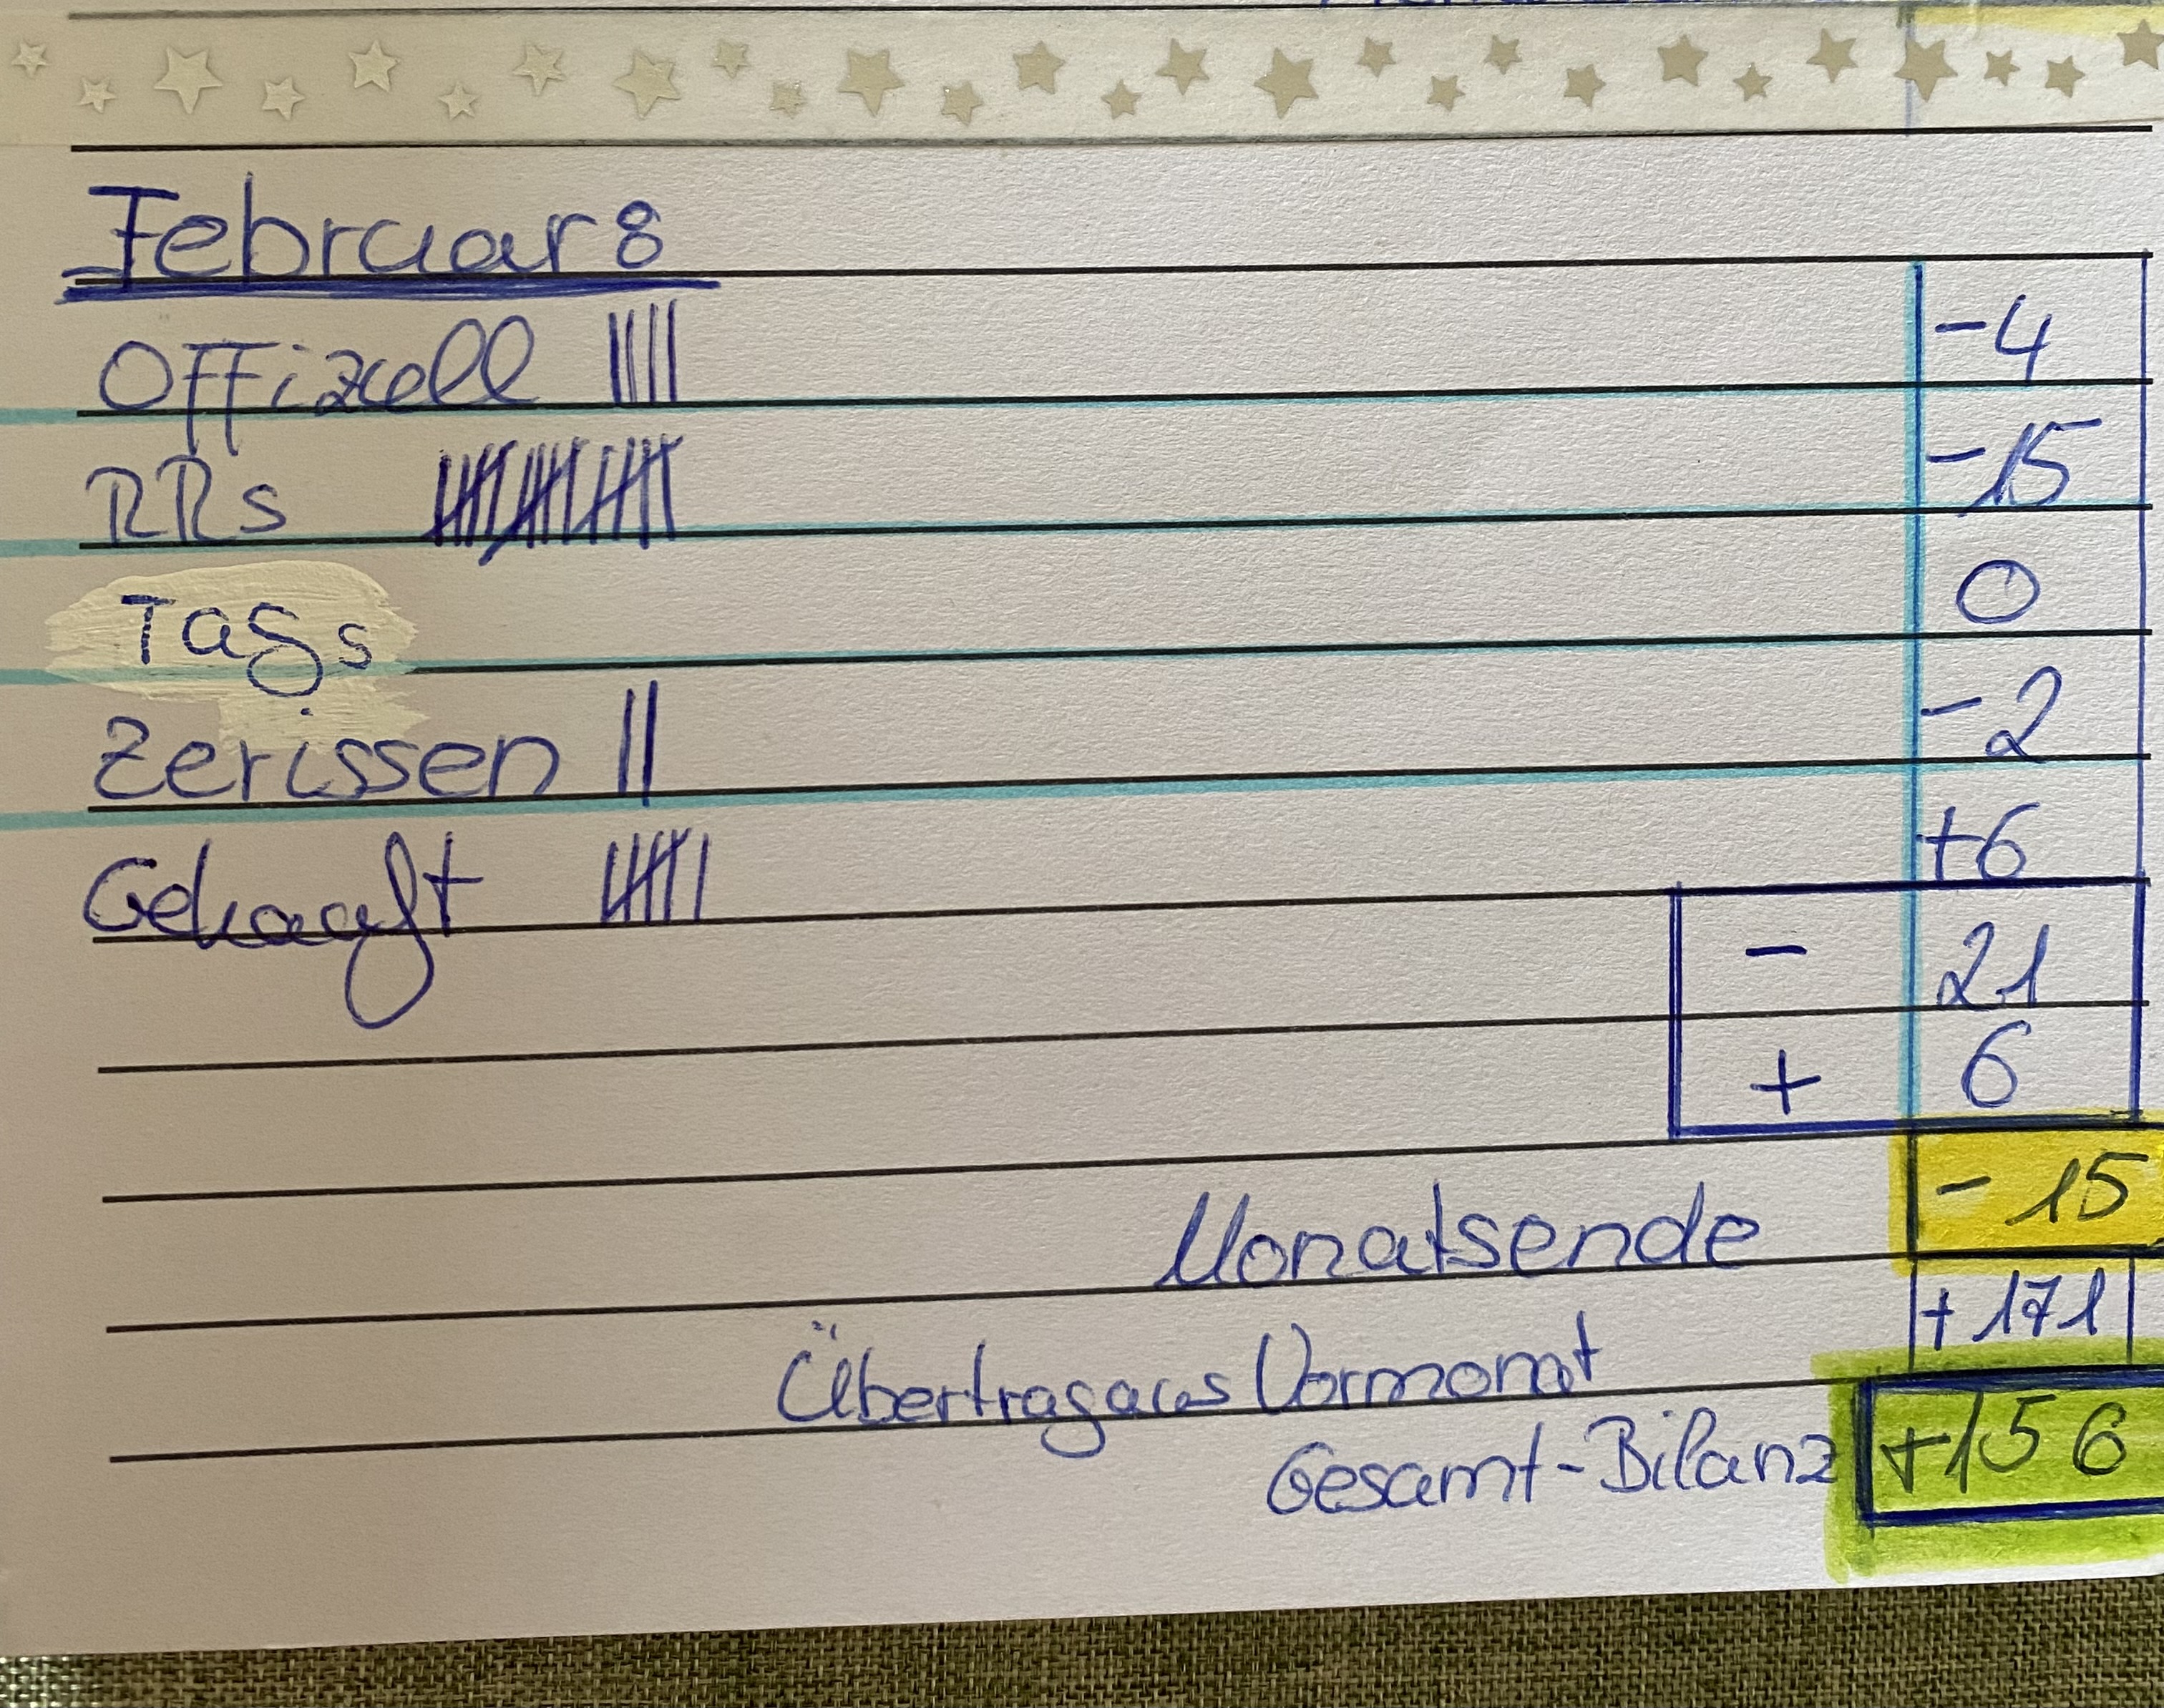 Februar 8
Offizell |||| -4
RRs |||| |||| |||| -15
Tags 0
Zerissen || -2
Gekauft |||| | +6
- 21
+ 6
Monatsende - 15
Übertrag aus Vormonat + 171
Gesamt-Bilanz +156